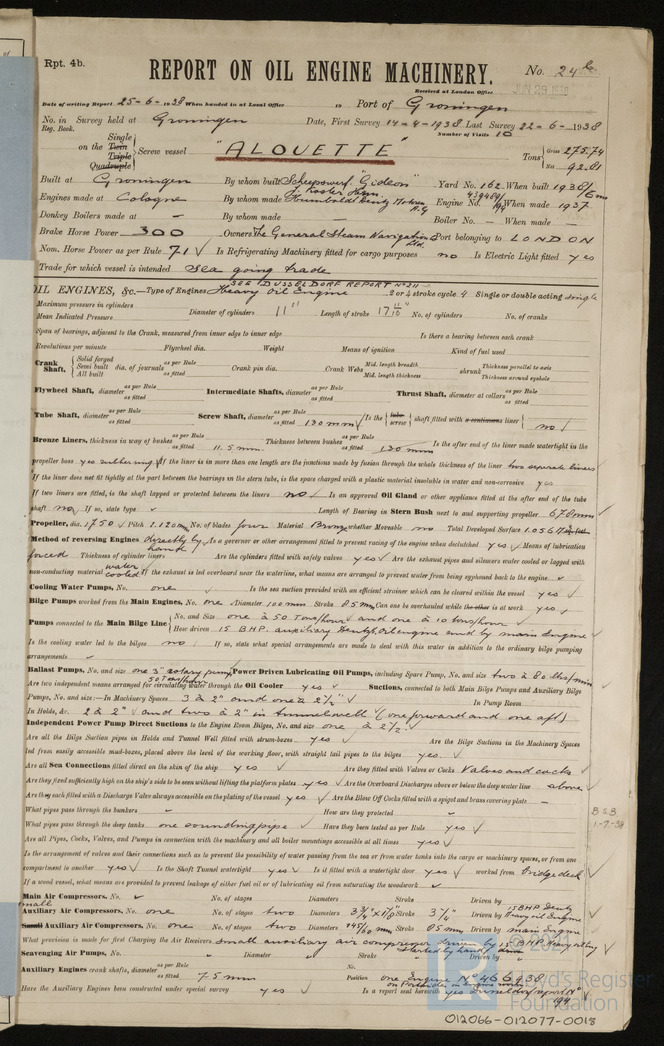 Rpt. 4b.
REPORT ON OIL ENGINE MACHINERY.
No. 24
Received at London Office
Date of writing Report 25-6-1938 When handed in at Local Office 19 Port of Groningen
No. in Survey held at Groningen Date, First Survey 14-4-1938 Last Survey 22-6-1938
Reg. Book. Number of Visits 10
Single
on the Twin
Triple
Quadruple
Screw vessel "ALOUETTE" Tons Gross 275.74
Net 92.81
Built at Groningen By whom built Scheepswerf "Gideon" Yard No. 162 When built 1938
Engines made at Cologne By whom made Engine No. When made 1937
Donkey Boilers made at - By whom made - Boiler No. - When made -
Brake Horse Power 300 Owners The General Steam Navigation Port belonging to LONDON
Nom. Horse Power as per Rule 71 Is Refrigerating Machinery fitted for cargo purposes no Is Electric Light fitted yes
Trade for which vessel is intended Sea going trade
SEE DUSSELDORF REPORT No 211
OIL ENGINES, &c.—Type of Engines Heavy Oil Engine 2 or 4 stroke cycle 4 Single or double acting single
Maximum pressure in cylinders Diameter of cylinders 11" Length of stroke 17 11/16" No. of cylinders No. of cranks
Mean Indicated Pressure
Span of bearings, adjacent to the Crank, measured from inner edge to inner edge Is there a bearing between each crank
Revolutions per minute Flywheel dia. Weight Means of ignition Kind of fuel used
Crank Shaft, Solid forged Semi built All built dia. of journals as per Rule as fitted Crank pin dia. Crank Webs Mid. length breadth Mid. length thickness shrunk Thickness parallel to axis Thickness around eyehole
Flywheel Shaft, diameter as per Rule as fitted Intermediate Shafts, diameter as per Rule as fitted Thrust Shaft, diameter at collars as per Rule as fitted
Tube Shaft, diameter as per Rule as fitted Screw Shaft, diameter as per Rule as fitted 130 mm Is the tube screw shaft fitted with a continuous liner no
Bronze Liners, thickness in way of bushes as per Rule as fitted 11.5 mm Thickness between bushes as per Rule as fitted Is the after end of the liner made watertight in the
propeller boss yes rubber ring If the liner is in more than one length are the junctions made by fusion through the whole thickness of the liner two separate liners
If the liner does not fit tightly at the part between the bearings in the stern tube, is the space charged with a plastic material insoluble in water and non-corrosive yes
If two liners are fitted, is the shaft lapped or protected between the liners no Is an approved Oil Gland or other appliance fitted at the after end of the tube
shaft no If so, state type Length of Bearing in Stern Bush next to and supporting propeller 670 mm
Propeller, dia. 1750 Pitch 1.120 mm No. of blades four Material Bronze whether Moveable no Total Developed Surface 1.0567
Method of reversing Engines directly by hand Is a governor or other arrangement fitted to prevent racing of the engine when declutched yes Means of lubrication
forced Thickness of cylinder liners Are the cylinders fitted with safety valves yes Are the exhaust pipes and silencers water cooled or lagged with
non-conducting material water cooled If the exhaust is led overboard near the waterline, what means are arranged to prevent water from being syphoned back to the engine
Cooling Water Pumps, No. one Is the sea suction provided with an efficient strainer which can be cleared within the vessel yes
Bilge Pumps worked from the Main Engines, No. one Diameter 100 mm Stroke 85 mm Can one be overhauled while the other is at work yes
Pumps connected to the Main Bilge Line No. and Size one à 50 Tons/hour and one à 10 tons/hour
How driven 15 BHP. auxiliary Deutz oil engine and by main Engine
Is the cooling water led to the bilges no If so, state what special arrangements are made to deal with this water in addition to the ordinary bilge pumping
arrangements
Ballast Pumps, No. and size one 3" rotary pump 50 Tons/hour Power Driven Lubricating Oil Pumps, including Spare Pump, No. and size two à 80 lbs/min
Are two independent means arranged for circulating water through the Oil Cooler yes Suctions, connected to both Main Bilge Pumps and Auxiliary Bilge
Pumps, No. and size:—In Machinery Spaces 3 à 2" and one à 2 1/2" In Pump Room
In Holds, &c. 2 à 2" and two à 2" in tunnelwell (one forward and one aft)
Independent Power Pump Direct Suctions to the Engine Room Bilges, No. and size one à 2 1/2"
Are all the Bilge Suction pipes in Holds and Tunnel Well fitted with strum-boxes yes Are the Bilge Suctions in the Machinery Spaces
led from easily accessible mud-boxes, placed above the level of the working floor, with straight tail pipes to the bilges yes
Are all Sea Connections fitted direct on the skin of the ship yes Are they fitted with Valves or Cocks Valves and cocks
Are they fixed sufficiently high on the ship's side to be seen without lifting the platform plates yes Are the Overboard Discharges above or below the deep water line above
Are they each fitted with a Discharge Valve always accessible on the plating of the vessel yes Are the Blow Off Cocks fitted with a spigot and brass covering plate -
What pipes pass through the bunkers - How are they protected
What pipes pass through the deep tanks one sounding pipe Have they been tested as per Rule yes
Are all Pipes, Cocks, Valves, and Pumps in connection with the machinery and all boiler mountings accessible at all times yes
Is the arrangement of valves and their connections such as to prevent the possibility of water passing from the sea or from water tanks into the cargo or machinery spaces, or from one
compartment to another yes Is the Shaft Tunnel watertight yes Is it fitted with a watertight door yes worked from bridge deck
If a wood vessel, what means are provided to prevent leakage of either fuel oil or of lubricating oil from saturating the woodwork
Main Air Compressors, No. No. of stages Diameters Stroke Driven by
small Auxiliary Air Compressors, No. one No. of stages two Diameters Stroke 3 1/4" Driven by 15 BHP Deutz Heavy oil Engine
Small Auxiliary Air Compressors, No. one No. of stages two Diameters Stroke 85 mm Driven by main Engine
What provision is made for first Charging the Air Receivers small auxiliary air compressor driven by 15 BHP Heavy oil eng started by hand
Scavenging Air Pumps, No. Diameter Stroke Driven by
Auxiliary Engines crank shafts, diameter as per Rule as fitted 75 mm No. Position one Engine No 466938
Have the Auxiliary Engines been constructed under special survey yes Is a report sent herewith yes
BSB
1-7-38
© 2021
Lloyd's Register
Foundation
012066-012077-0018